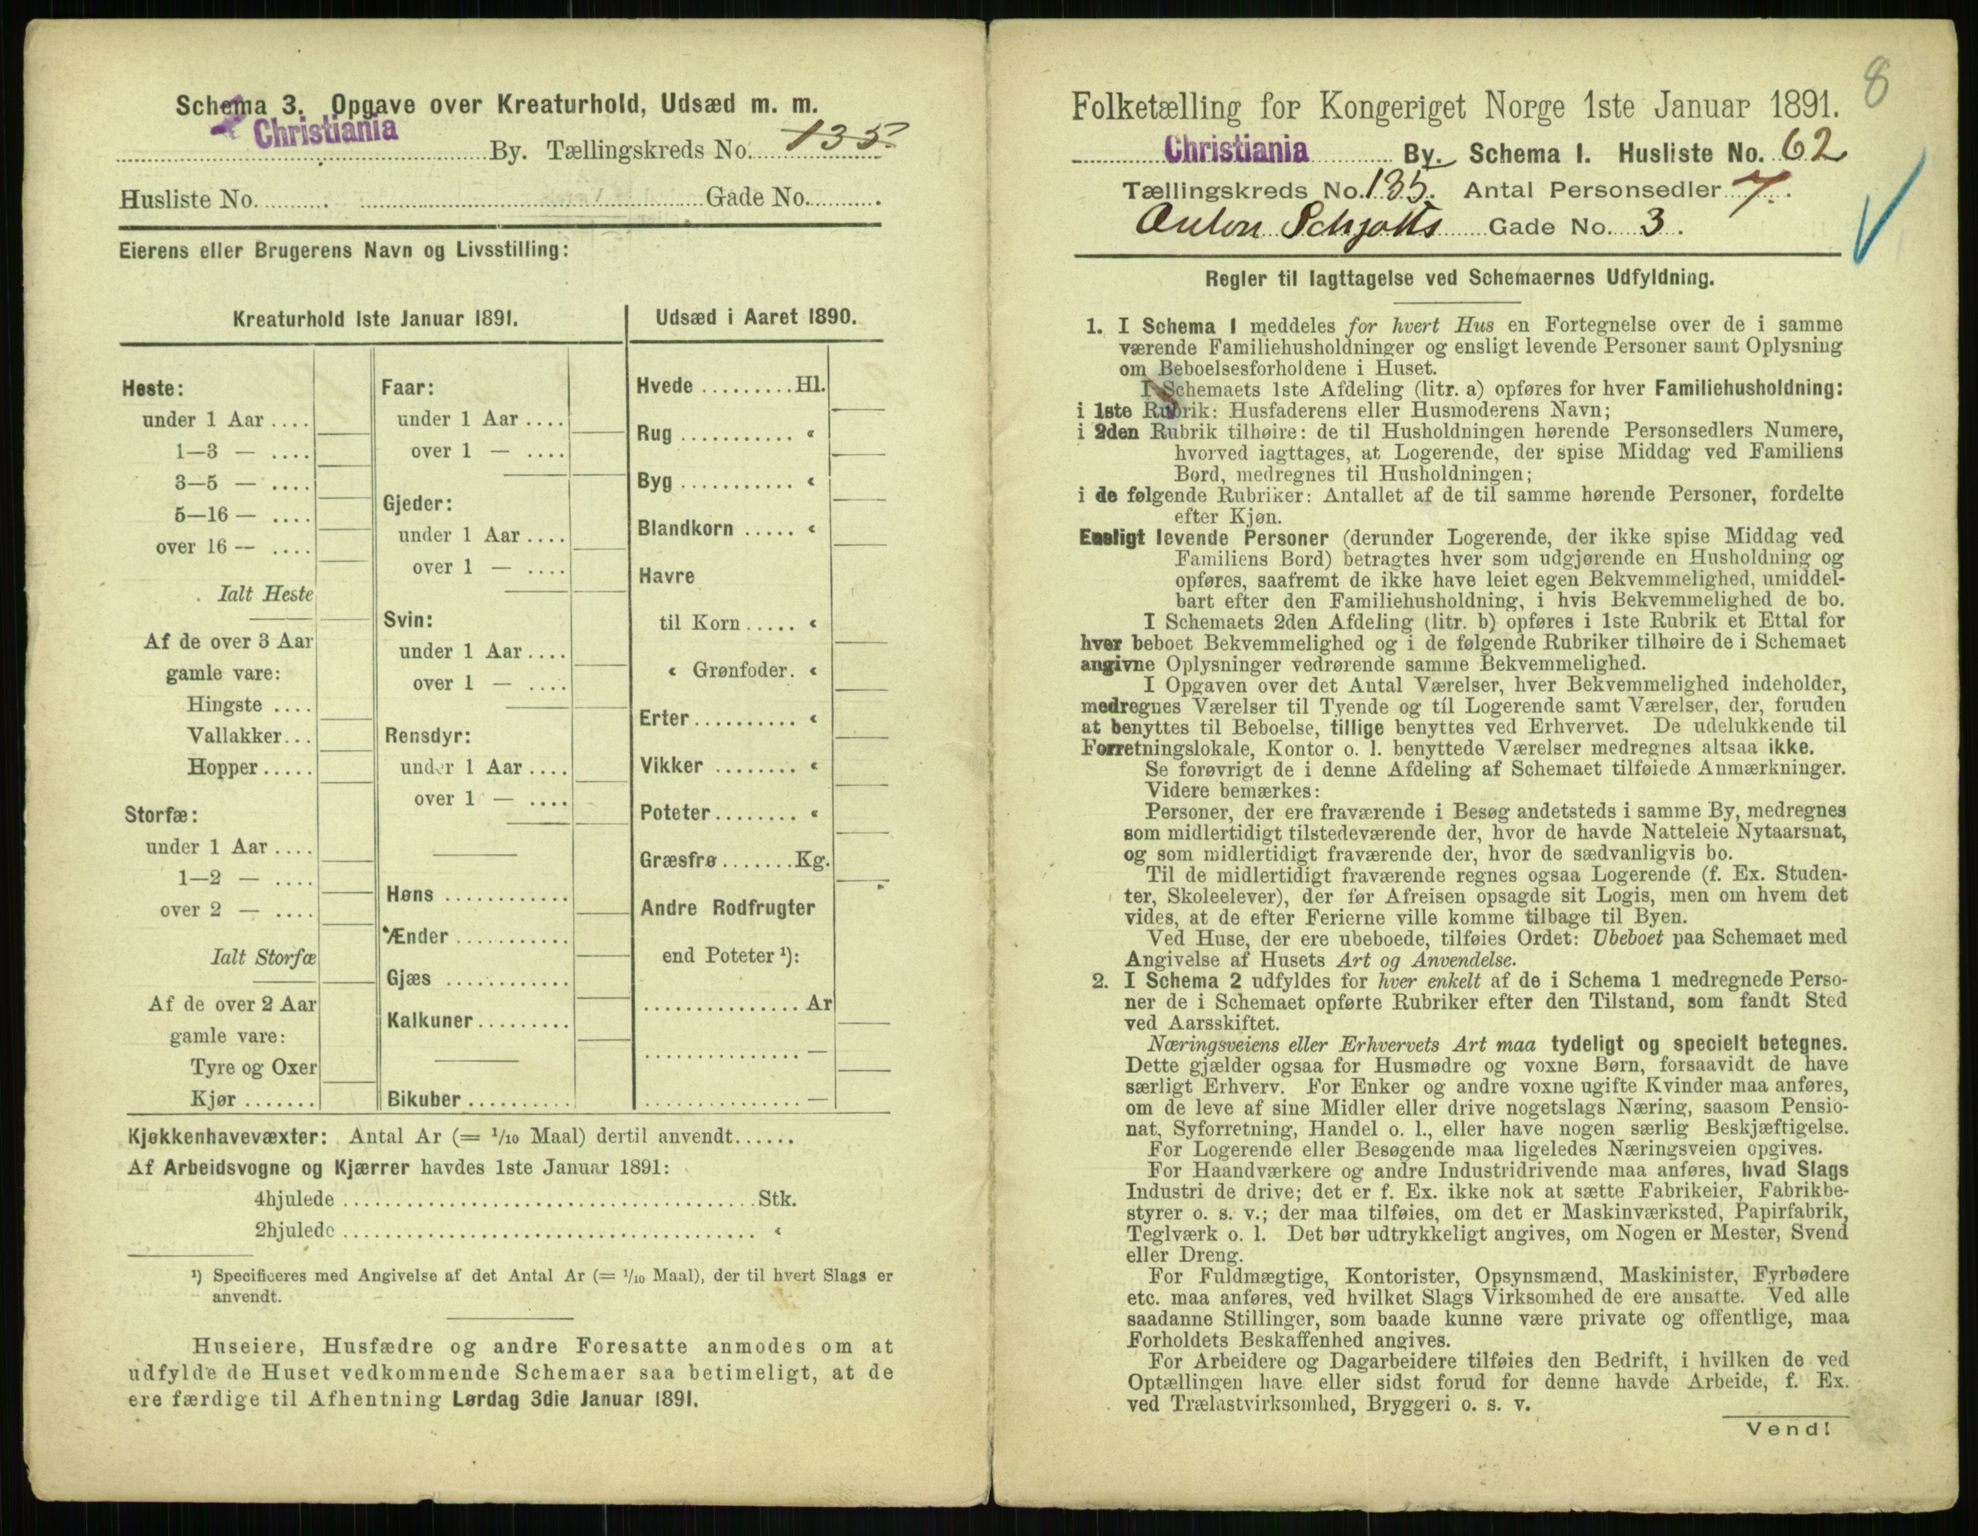 Schema 3. Opgave over Kreaturhold, Udsæd m. m.
Christiania By. Tællingskreds No. 135
Husliste No. Gade No.
Eierens eller Brugerens Navn og Livsstilling:
Kreaturhold 1ste Januar 1891.
Heste:
under 1 Aar
1—3 —
3—5 —
5—16 —
over 16 —
Ialt Heste
Af de over 3 Aar
gamle vare:
Hingste
Vallakker
Hopper
Storfæ:
under 1 Aar
1—2 —
over 2 —
Ialt Storfæ
Af de over 2 Aar
gamle vare:
Tyre og Oxer
Kjør
Faar:
under 1 Aar
over 1 —
Gjeder:
under 1 Aar
over 1 —
Svin:
under 1 Aar
over 1 —
Rensdyr:
under 1 Aar
over 1 —
Høns
Ænder
Gjæs
Kalkuner
Bikuber
Udsæd i Aaret 1890.
Hvede Hl.
Rug «
Byg «
Blandkorn «
Havre
til Korn «
« Grønfoder. «
Erter «
Vikker «
Poteter «
Græsfrø Kg.
Andre Rodfrugter
end Poteter ¹):
Ar
—
—
Kjøkkenhavevæxter: Antal Ar (= 1/10 Maal) dertil anvendt
Af Arbeidsvogne og Kjærrer havdes 1ste Januar 1891:
4hjulede Stk.
2hjulede «
¹) Specificeres med Angivelse af det Antal Ar (= 1/10 Maal), der til hvert Slags er
anvendt.
Huseiere, Husfædre og andre Foresatte anmodes om at
udfylde de Huset vedkommende Schemaer saa betimeligt, at de
ere færdige til Afhentning Lørdag 3die Januar 1891.
8
Folketælling for Kongeriget Norge 1ste Januar 1891.
Christiania By. Schema 1. Husliste No. 62
Tællingskreds No. 135. Antal Personsedler 7.
Anton Schjøtts Gade No. 3.
Regler til Iagttagelse ved Schemaernes Udfyldning.
1. I Schema 1 meddeles for hvert Hus en Fortegnelse over de i samme
værende Familiehusholdninger og ensligt levende Personer samt Oplysning
om Beboelsesforholdene i Huset.
I Schemaets 1ste Afdeling (litr. a) opføres for hver Familiehusholdning:
i 1ste Rubrik: Husfaderens eller Husmoderens Navn;
i 2den Rubrik tilhøire: de til Husholdningen hørende Personsedlers Numere,
hvorved iagttages, at Logerende, der spise Middag ved Familiens
Bord, medregnes til Husholdningen;
i de følgende Rubriker: Antallet af de til samme hørende Personer, fordelte
efter Kjøn.
Ensligt levende Personer (derunder Logerende, der ikke spise Middag ved
Familiens Bord) betragtes hver som udgjørende en Husholdning og
opføres, saafremt de ikke have leiet egen Bekvemmelighed, umiddel-
bart efter den Familiehusholdning, i hvis Bekvemmelighed de bo.
I Schemaets 2den Afdeling (litr. b) opføres i 1ste Rubrik et Ettal for
hver beboet Bekvemmelighed og i de følgende Rubriker tilhøire de i Schemaet
angivne Oplysninger vedrørende samme Bekvemmelighed.
I Opgaven over det Antal Værelser, hver Bekvemmelighed indeholder,
medregnes Værelser til Tyende og til Logerende samt Værelser, der, foruden
at benyttes til Beboelse, tillige benyttes ved Erhvervet. De udelukkende til
Forretningslokale, Kontor o. l. benyttede Værelser medregnes altsaa ikke.
Se forøvrigt de i denne Afdeling af Schemaet tilføiede Anmærkninger.
Videre bemærkes:
Personer, der ere fraværende i Besøg andetsteds i samme By, medregnes
som midlertidigt tilstedeværende der, hvor de havde Natteleie Nytaarsnat,
og som midlertidigt fraværende der, hvor de sædvanligvis bo.
Til de midlertidigt fraværende regnes ogsaa Logerende (f. Ex. Studen-
ter, Skoleelever), der før Afreisen opsagde sit Logis, men om hvem det
vides, at de efter Ferierne ville komme tilbage til Byen.
Ved Huse, der ere ubeboede, tilføies Ordet: Ubeboet paa Schemaet med
Angivelse af Husets Art og Anvendelse.
2. I Schema 2 udfyldes for hver enkelt af de i Schema 1 medregnede Perso-
ner de i Schemaet opførte Rubriker efter den Tilstand, som fandt Sted
ved Aarsskiftet.
Næringsveiens eller Erhvervets Art maa tydeligt og specielt betegnes.
Dette gjælder ogsaa for Husmødre og voxne Børn, forsaavidt de have
særligt Erhverv. For Enker og andre voxne ugifte Kvinder maa anføres,
om de leve af sine Midler eller drive nogetslags Næring, saasom Pensio-
nat, Syforretning, Handel o. l., eller have nogen særlig Beskjæftigelse.
For Logerende eller Besøgende maa ligeledes Næringsveien opgives.
For Haandværkere og andre Industridrivende maa anføres, hvad Slags
Industri de drive; det er f. Ex. ikke nok at sætte Fabrikeier, Fabrikbe-
styrer o. s. v.; der maa tilføies, om det er Maskinværksted, Papirfabrik,
Teglværk o. l. Det bør udtrykkeligt angives, om Nogen er Mester, Svend
eller Dreng.
For Fuldmægtige, Kontorister, Opsynsmænd, Maskinister, Fyrbødere
etc. maa anføres, ved hvilket Slags Virksomhed de ere ansatte. Ved alle
saadanne Stillinger, som baade kunne være private og offentlige, maa
Forholdets Beskaffenhed angives.
For Arbeidere og Dagarbeidere tilføies den Bedrift, i hvilken de ved
Optællingen have eller sidst forud for denne havde Arbeide, f. Ex.
ved Trælastvirksomhed, Bryggeri o. s. v.
Vend!